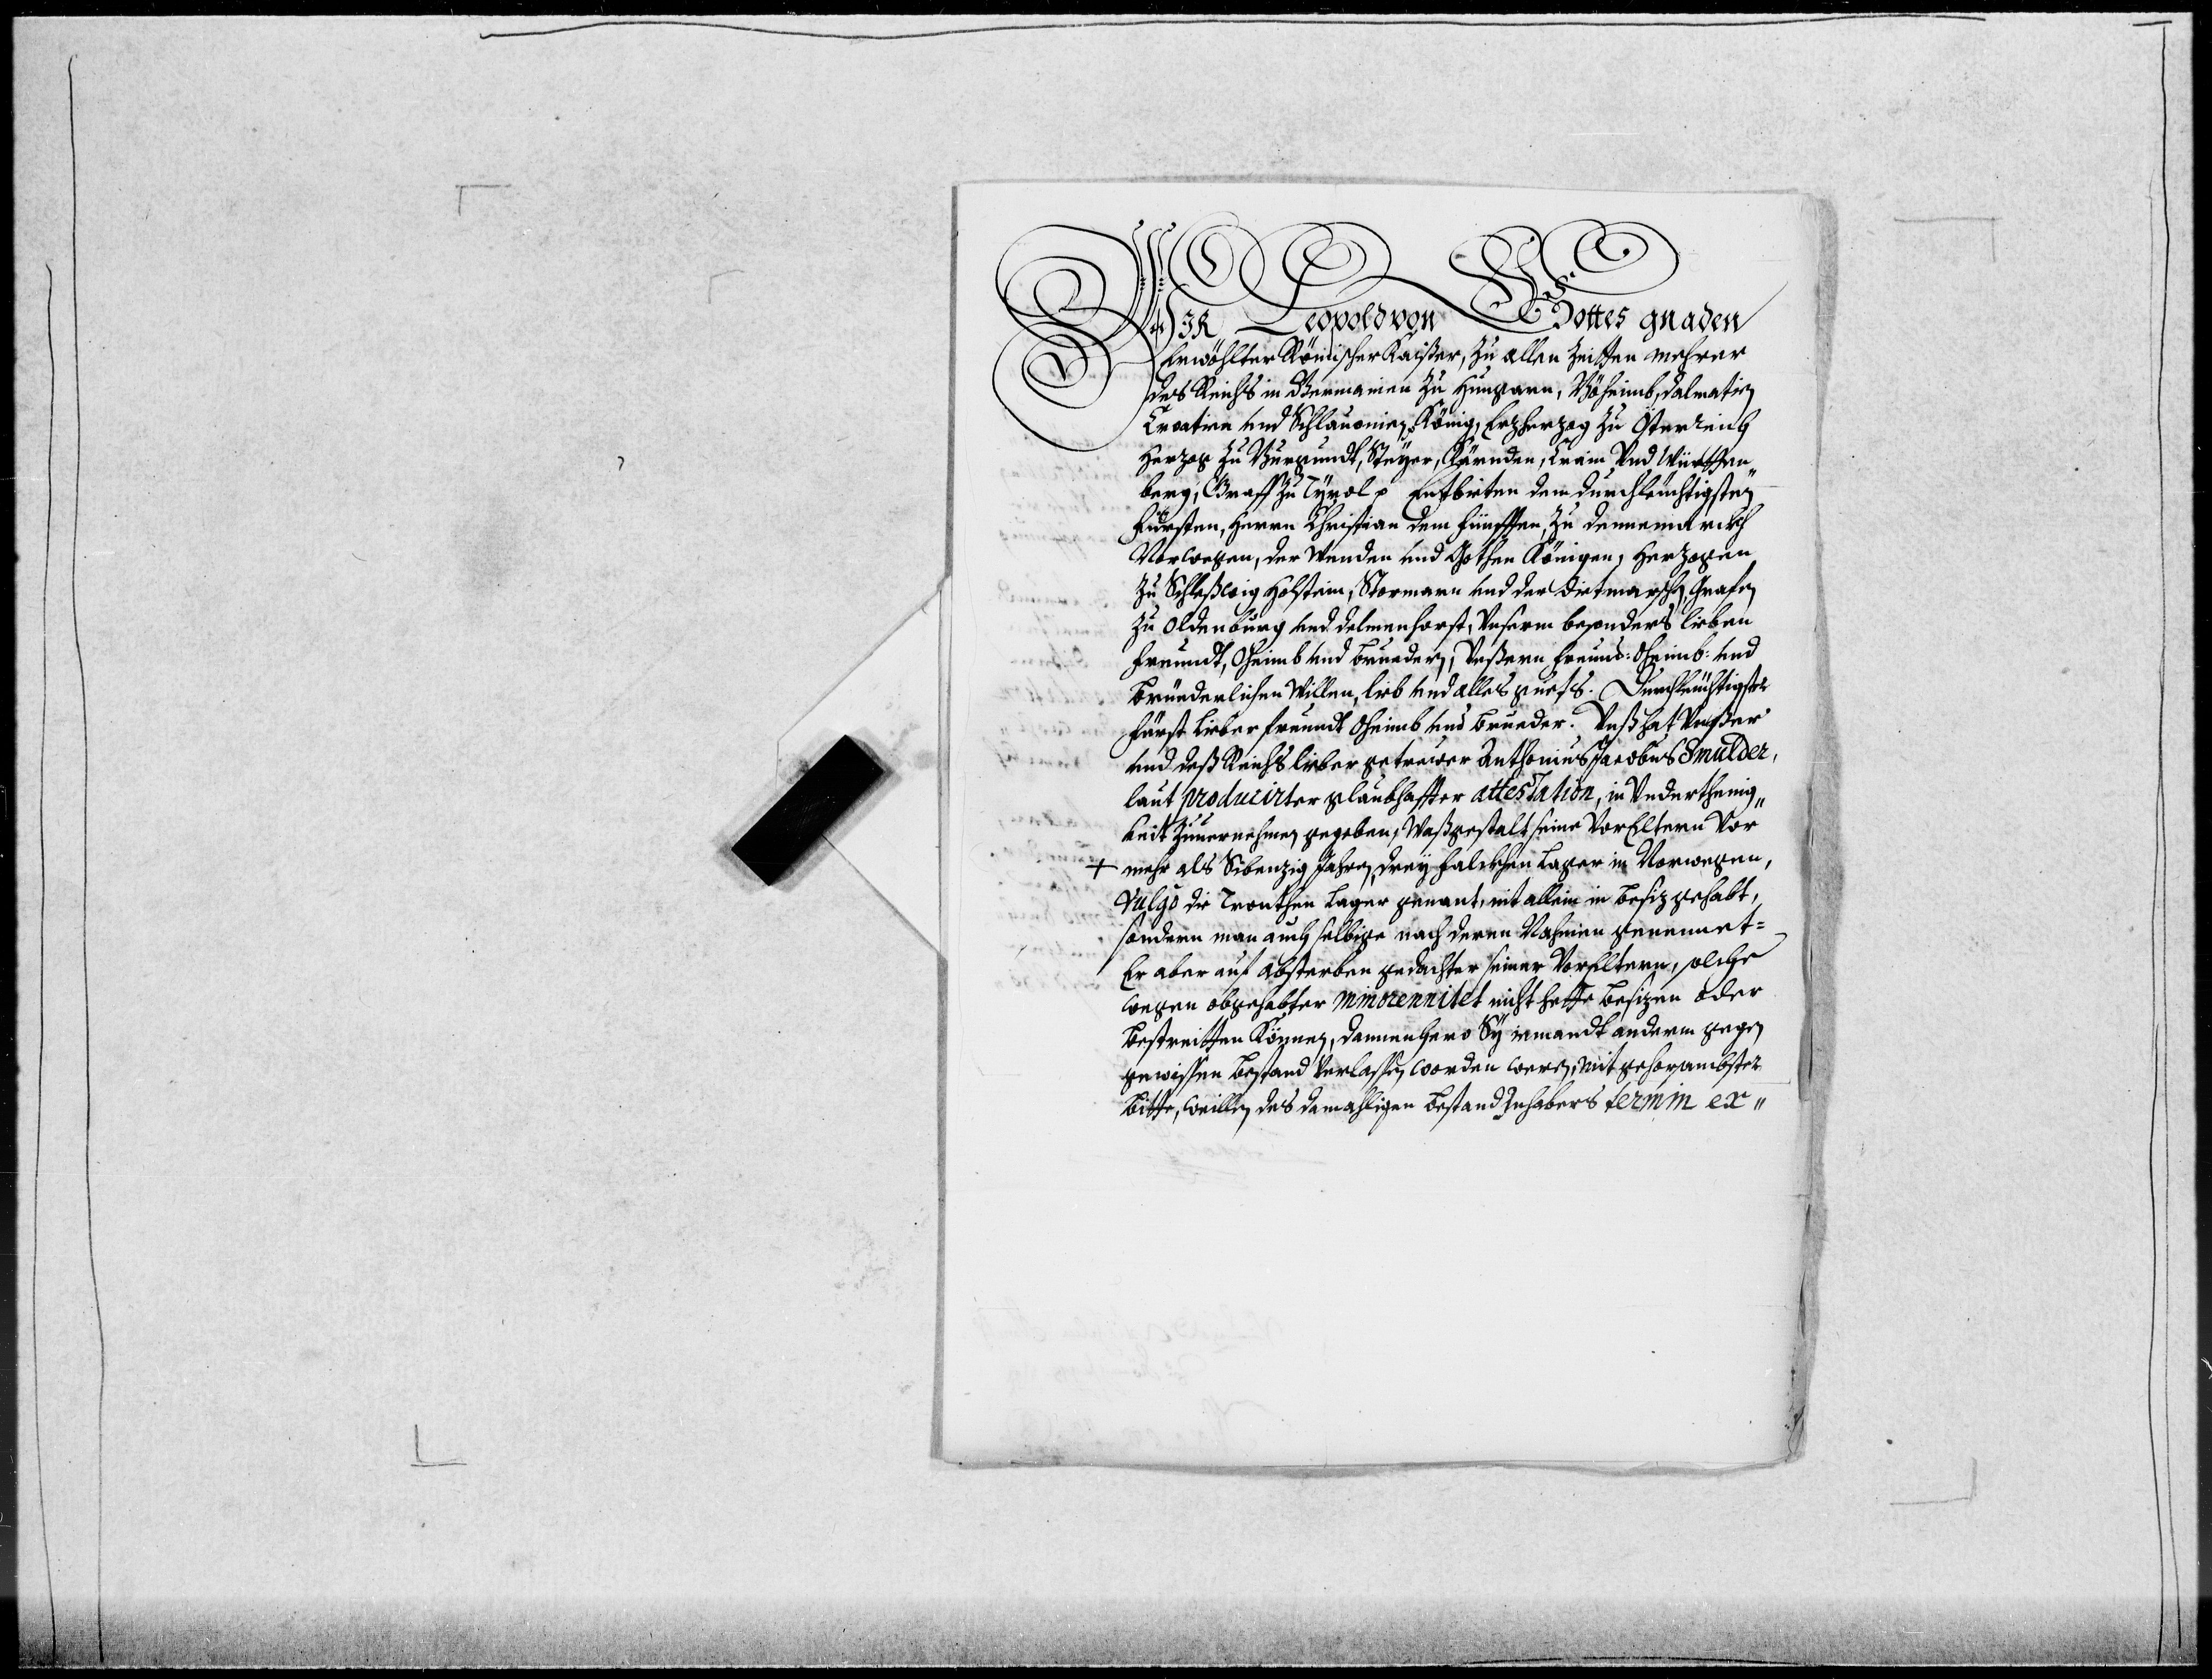 WIR Leopold von Gottes gnaden
Erwöhlter Römischer Kaißer, zu allen Zeitten mehrer
des Reichs in Germanien zu Hungarn, Böheimb, Dalmatien
Croatien und Schlauonien König, Erzherzog zu Österreich
Herzog zu Burgundt, Steyer, Cärnden, Crain Und Württen„
berg, Graff zu Tyrol p Entbieten dem durchleüchtigsten
Fürsten, Herrn Christian dem Fünfften, zu Dennemarckh
Norwegen, der Wenden und Gothen Königen, Herzogen
zu Schleßwig Holstein, Stormarn und der Dietmarschen, Grafen
zu Oldenburg und Delmenhorst, Unserm besonders lieben
Freundt, Oheimb und Bruedern, Unßern freund: Oheimb: und
Brüederlichen Willen, lieb und alles guets. Durchleüchtigster
Fürst Lieber freundt Oheimb und Brueder. Unß hat Unßer
und deß Reichs lieber getrewer Anthonius Jacobus Smulder,
laut producirter glaubhaffter attestation, in Underthenig„
keit zuuernehmen gegeben, Waßgestalt seine VorEltern Vor
+ mehr als Sibenzig Jahren, drey Falckhen Lager in Norwegen,
Vulgo die Tronthen Lager genant, nit allein in besiz gehabt,
sondern man auch selbige nach deren Nahmen genennet=
Er aber auf Absterben gedachter seiner VorEltern, solche
wegen obgehabter minorennitet nicht hette besizen oder
bestreitten Können, dannenhero Sy iemandt anderm gegen
gewissen bestand verlassen worden weren, mit gehorsambster
bitte, weillen des damahligen bestand Inhabers termin ex„